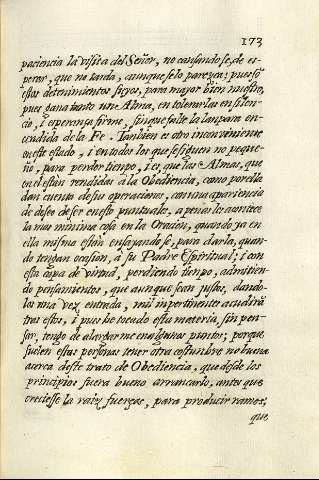 173
paciencia la visita del Señor, no cansandose, de es-
perar, que no tarda, aunque se lo parezca; pues sõ
estos detenimientos suyos, para mayor bien nuestro,
pues gana tanto una Alma, en tolerarlas en silen-
cio, i esperança firme, sin que falte la lampara en-
cendida de la Fe. Tambien es otro inconveniente
en este estado, i en todos los que se siguen no peque-
ño, para perder tiempo, i es, que las Almas, que
en el estàn rendidas à la Obediencia, como por ella
dan cuenta de sus operaciones, con una apariencia
de deseo de ser en esto puntuales, apenas les acontece
la mas minima cosa en la Oracion, quando ya en
ella misma estàn ensayandose, para darla, quan-
do tengan ocasion, à su Padre Espiritual; i con
esta capa de virtud, perdiendo tiempo, admitien-
do pensamientos, que aunque sean justos, dando-
la una vez entrada, mil impertinentes acudirà
tras estos, i pues he tocado esta materia, sin pen-
sar, tengo de alargarme en algunos puntos; porque
suelen estas personas tener otra costumbre no buena
acerca deste trato de Obediencia, que desde los
principios fuera bueno arrancarlo, antes que
creciesse la raiz fuerças, para producir ramos;
que